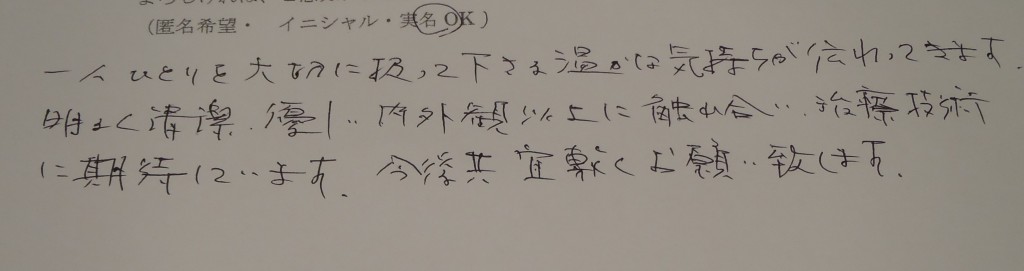 (匿名希望・　イニシャル・実名OK)
一人ひとりを大切に扱って下さる温かな気持ちが伝わってきます。
明るく清潔、優しい内外観以上に触れ合い、治療技術
に期待しています。今後共宜敷くお願い致します。